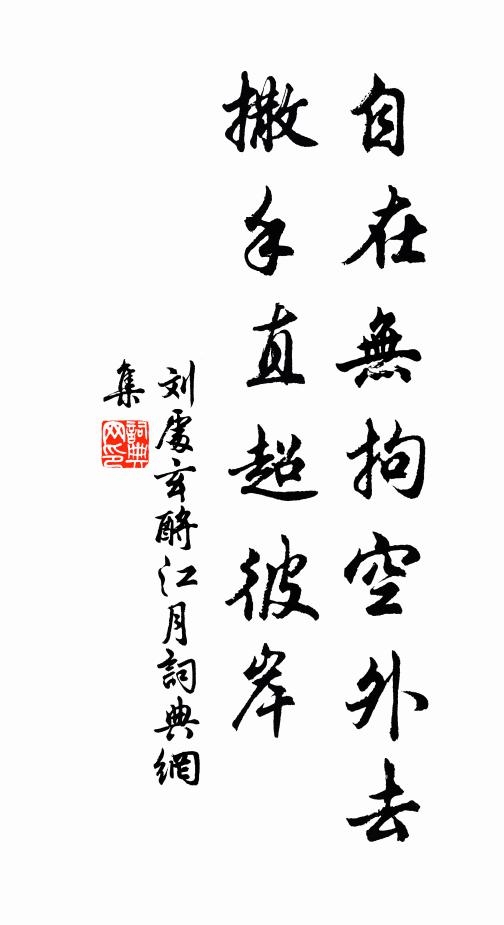 自在無拘空外去
撒手直超彼岸
刘處玄酹江月詞典網
集
詞典
网印